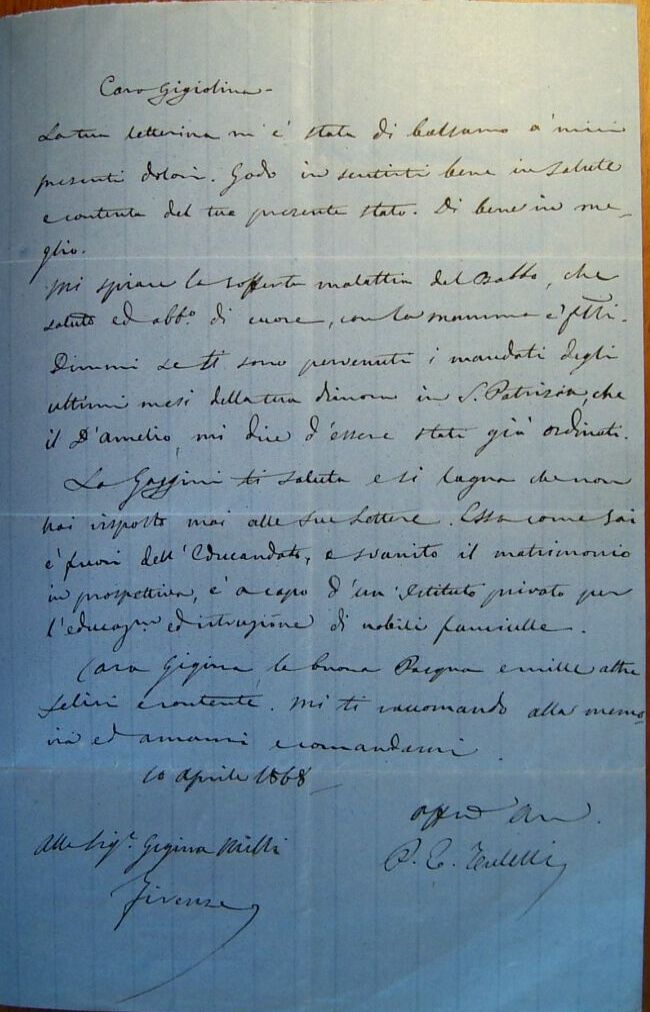 Cara Gigiolina -
La tua letterina m'è stata di balsamo a' miei
presenti dolori. Godo in sentirti bene in salute
e contenta del tuo presente stato. Di bene in me-
glio.
Mi spiace la sofferta malattia del Babbo, che
saluto ed abb.o di cuore, con la mamma e' f.lli.
Dimmi se ti sono pervenuti i mandati degli
ultimi mesi della tua dimora in S. Patrizia, che
il D'Amelio mi dice d'essere stati già ordinati.
La ti saluta e si lagna che non
hai risposto mai alle sue lettere. Essa come sai
è fuori dell'Educandato, e svanito il matrimonio
in prospettiva, è a capo d'un Istituto privato per
l'educaz.ne ed istruzione di nobili fanciulle.
Cara Gigina, la buona Pasqua e mille altre
felici e contente. Mi ti raccomando alla memo-
ria ed amami e comandami.
10 Aprile 1868
Alla Sig.a Gigina Milli
Firenze
P. E. Tulelli